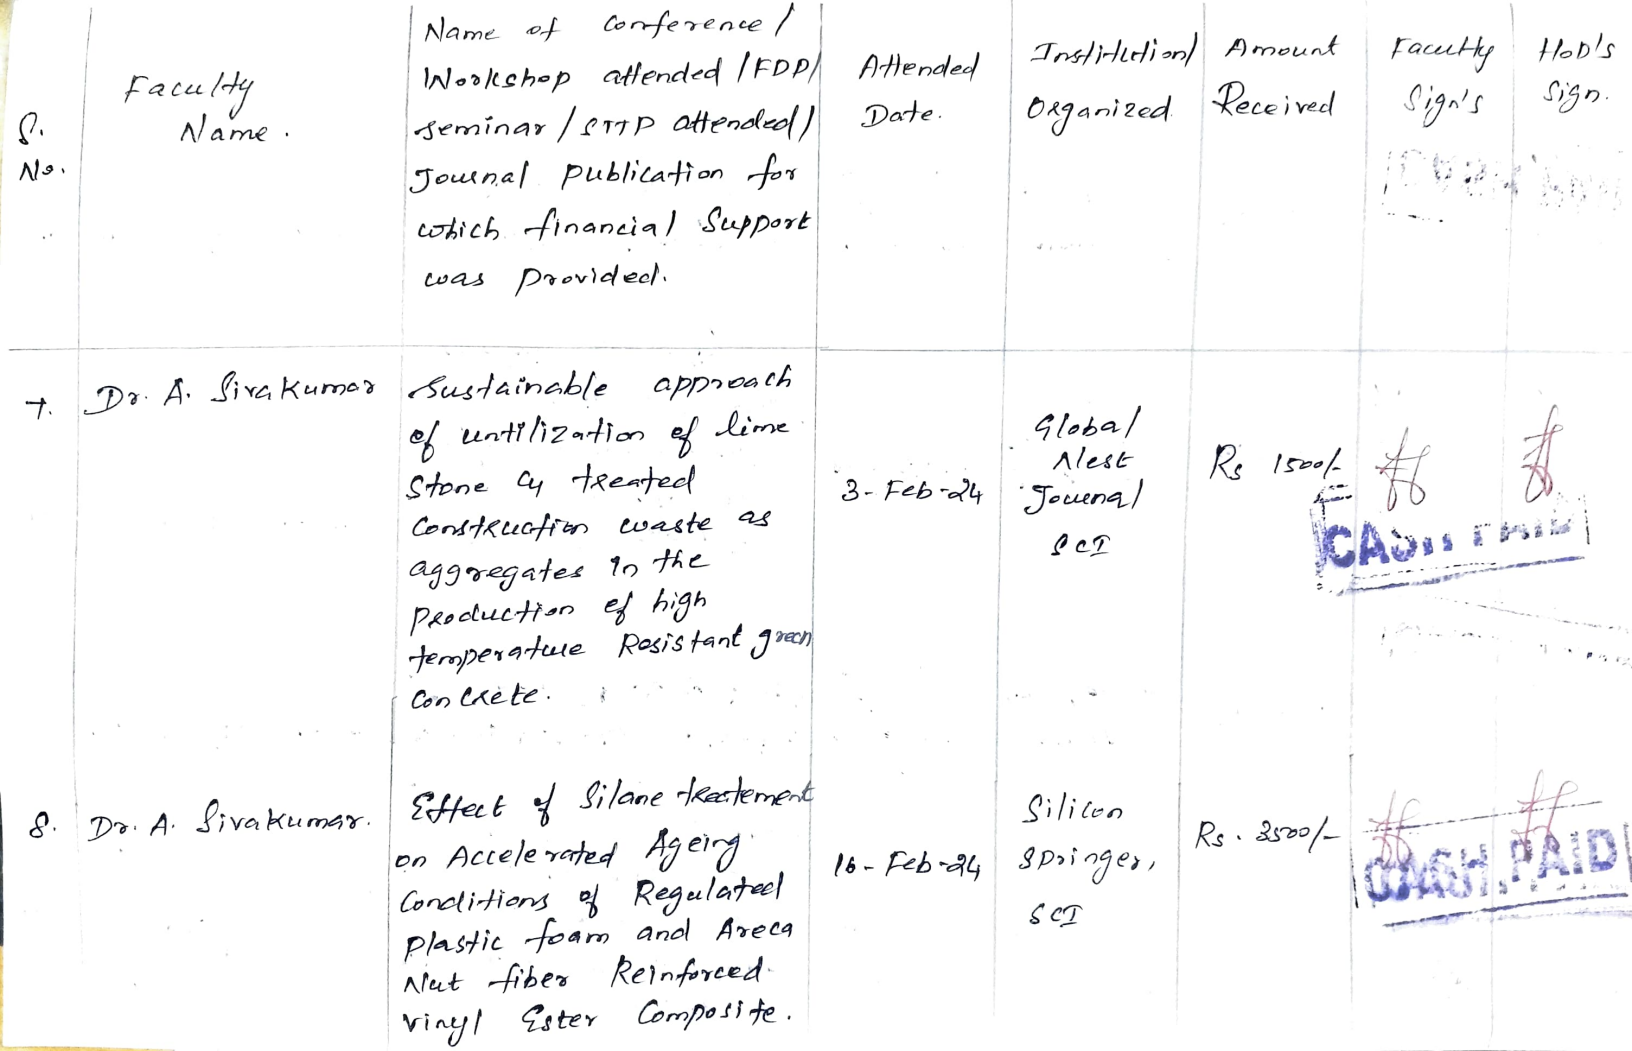 S. No.
Faculty Name.
Name of Conference /
Workshop attended / FDP/
Seminar / STTP attended /
Journal publication for
which financial Support
was provided.
Attended Date.
Institution/ Organized
Amount Received
Faculty Sign's
HoD's Sign.
7.
Dr. A. Sivakumar
Sustainable approach
of untilization of lime
Stone Cy treated
Construction waste as
aggregates in the
production of high
temperature Resistant green
Concrete.
3-Feb-24
Global
Nest
Journal
SCI
Rs 1500/-
CASH PAID
8.
Dr. A. Sivakumar.
Effect of Silane treatement
on Accelerated Ageing
Conditions of Regulated
plastic foam and Areca
Nut fiber Reinforced
vinyl Ester Composite.
16-Feb-24
Silicon
Springer,
SCI
Rs. 3500/-
CASH PAID